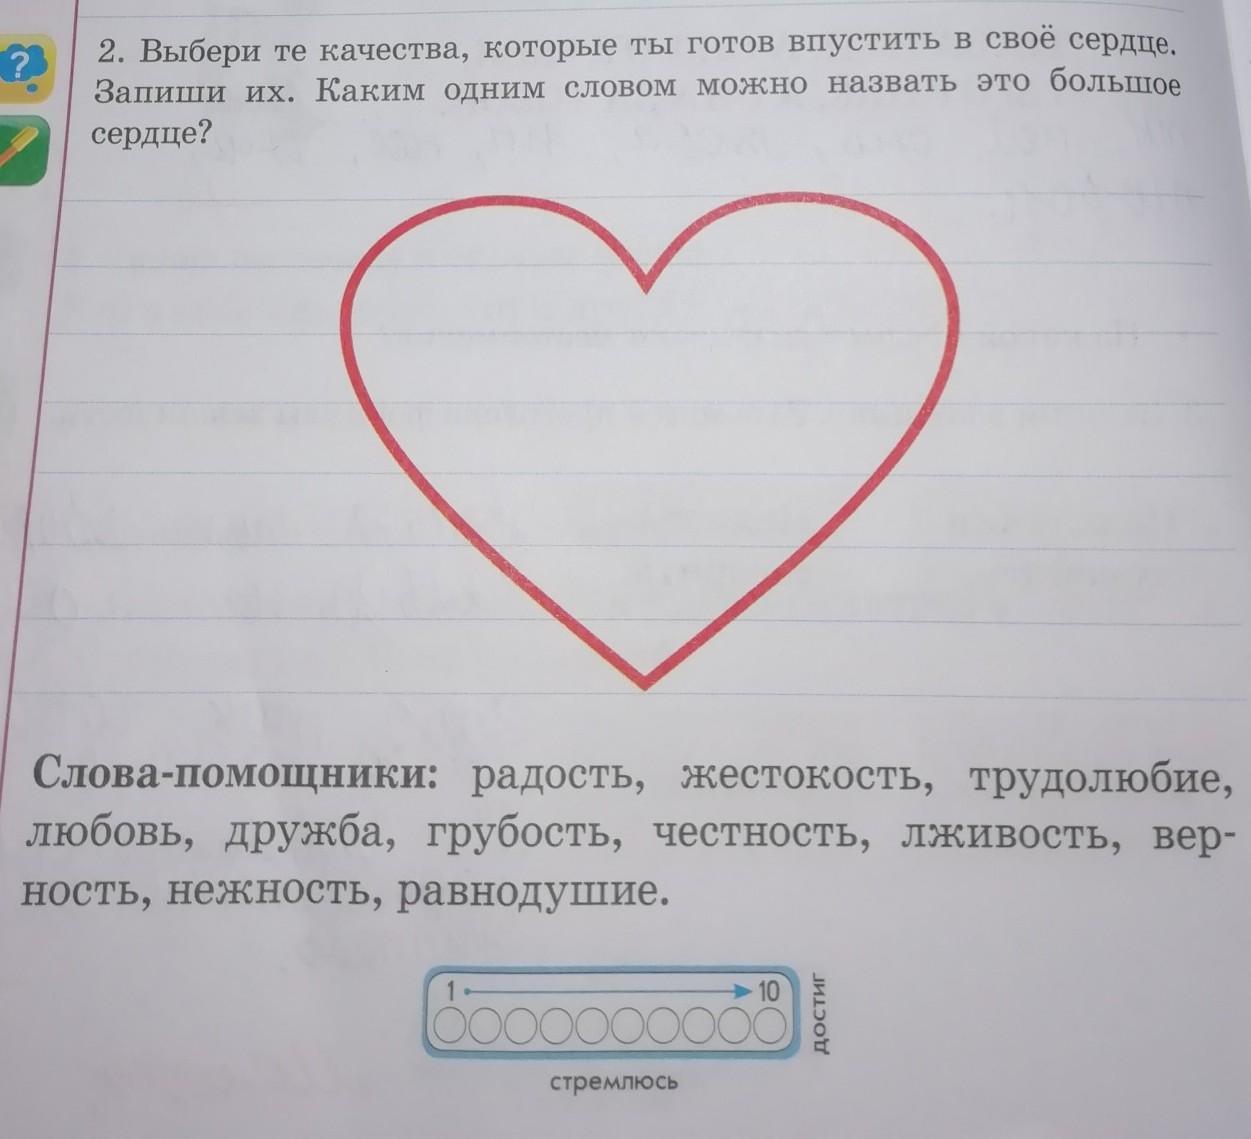 ?
2. Выбери те качества, которые ты готов впустить в своё сердце.
Запиши их. Каким одним словом можно назвать это большое
сердце?
Слова-помощники: радость, жестокость, трудолюбие,
любовь, дружба, грубость, честность, лживость, вер-
ность, нежность, равнодушие.
1 10
достиг
стремлюсь